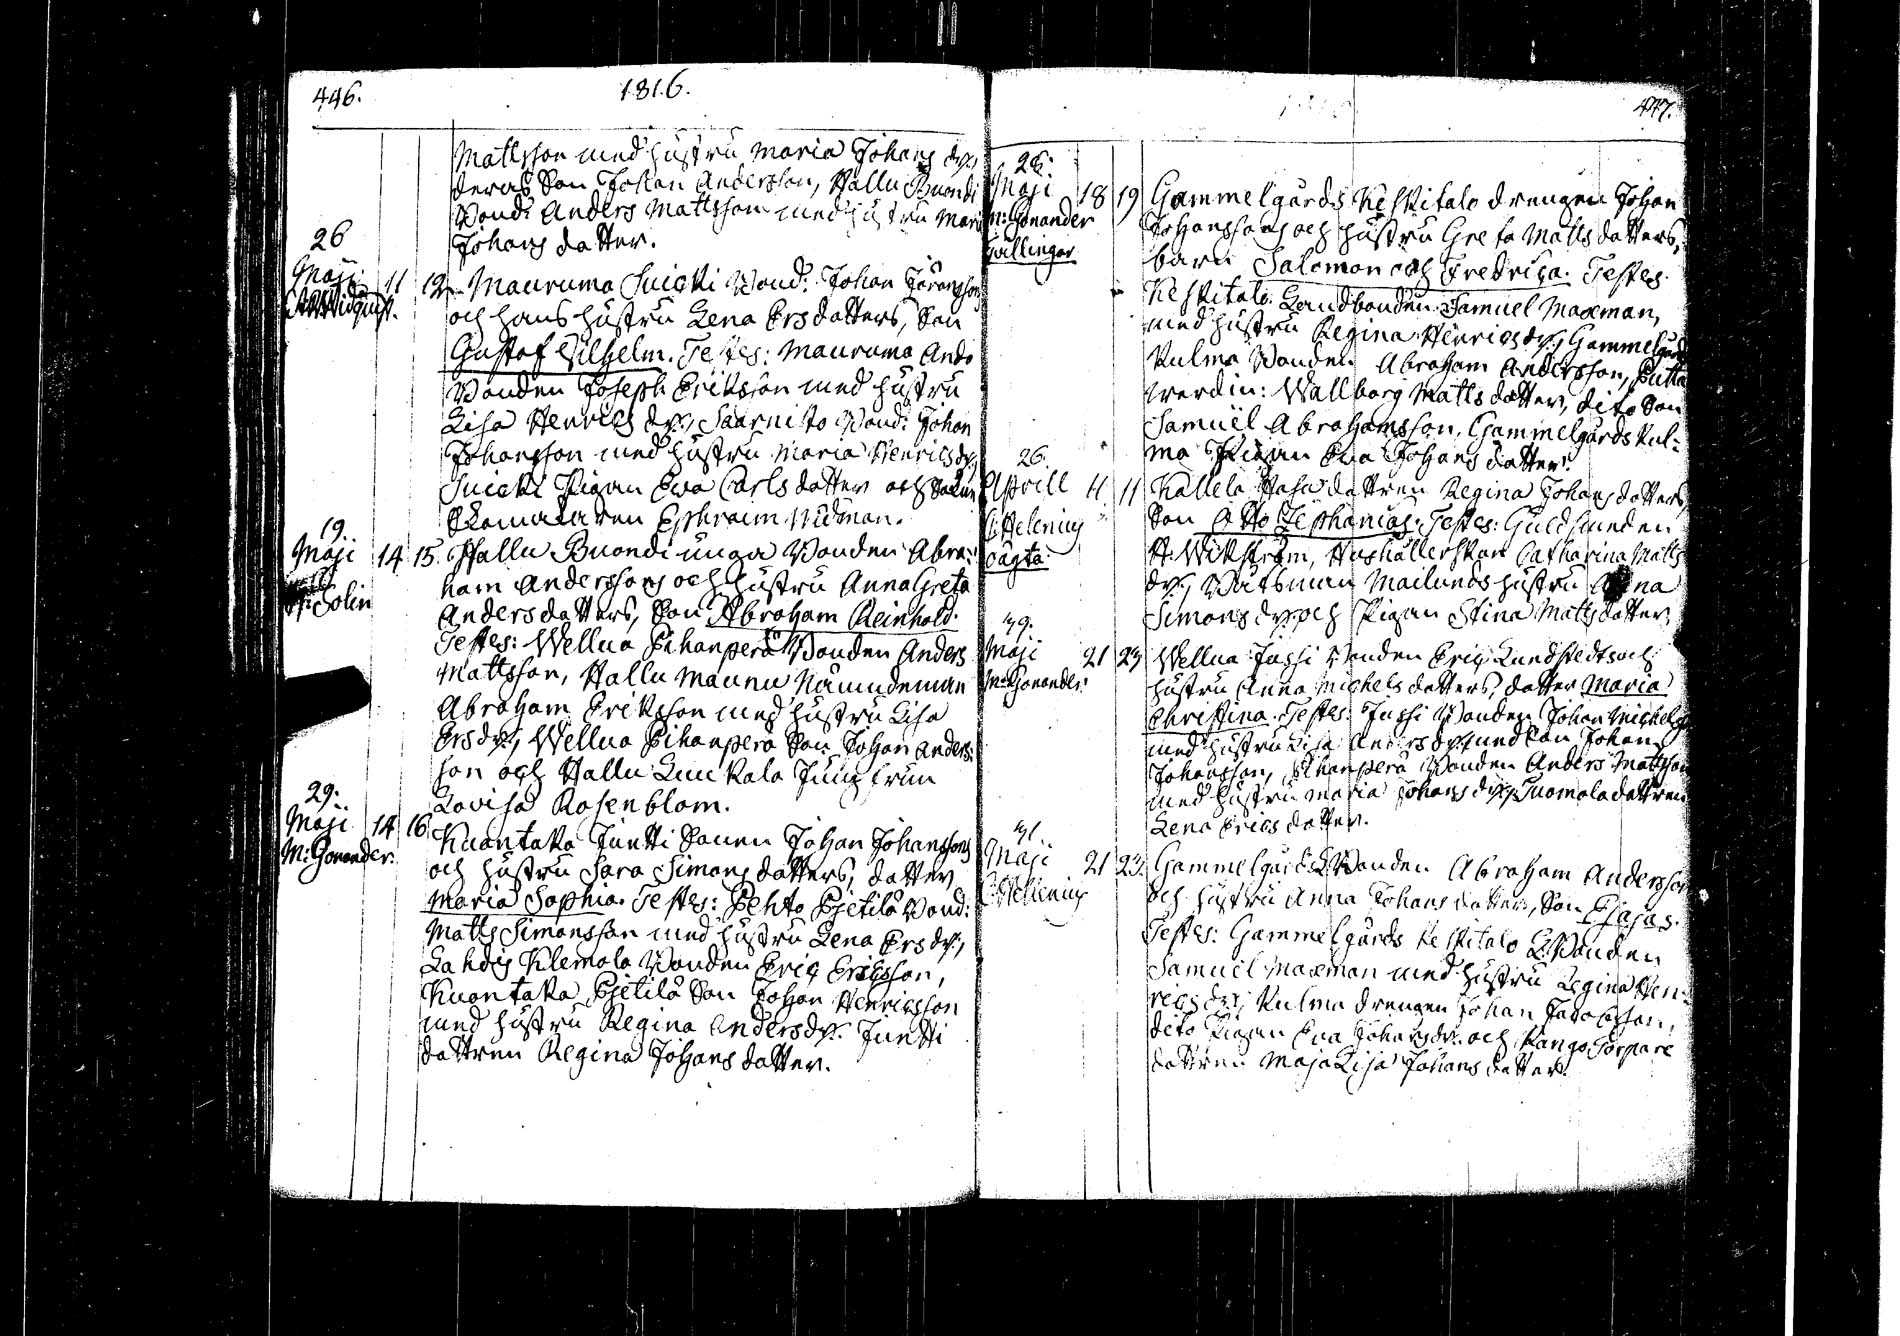 446.
1816.
Mattsson med hustru Maria Johans dr,
deras Son Johan Andersson, Hallu Buondi
Bond: Anders Mattsson med hustru Maria
Johans datter.
26
Maji 11 12
Mauruma Suicki Bond: Johan Göransson
och hans hustru Lena Ersdatters, Son
Gustaf Wilhelm. Testes: Mauruma Ando
Bonden Joseph Eriksson med hustru
Lisa Henrics dr, Saarnisto Bond: Johan
Johansson med hustru Maria Henricsdr,
Suicki Pigan Eva Carls datter och
Ephraim Widman.
19.
Maji 14 15.
Solin
Hallu Buondi unga Bonden Abra-
ham Anderssons och hustru Anna Greta
Andersdatters, Son Abraham Reinhold.
Testes: Wellua Pihanperä Bonden Anders
Mattsson, Hallu Maunu Nämndeman
Abraham Eriksson med hustru Lisa
Ersdr, Wellua Pihanperä Son Johan Anders-
son och Hallu Luukala Jungfrun
Lovisa Rosenblom.
29.
Maji 14 16
M: Gonander.
Kuontaka Juntti Sonen Johan Johanssons
och hustru Sara Simons datters, datter
Maria Sophia. Testes: Pehto Pietilä Bond:
Matts Simonsson med hustru Lena Ersdr,
Lahdis Klemola Bonden Eric Ericsson,
Kuontaka Pietilä Son Johan Henricsson
med hustru Regina Andersdr. Juntti
dattren Regina Johans datter.
447.
28.
Maji 18 19
M: Gonander
Tvillingar
Gammelgårds Keskitalo drengen Johan
Johanssons och hustru Greta Matts datters,
barn Salomon och Fredrica. Testes.
Keskitalo Landbonden Samuel Maxman,
med hustru Regina Henricsdr, Gammelgårds
Kulma Bonden Abraham Andersson,
werdin: Wallborg Matts datter, dito Son
Samuel Abrahamsson, Gammelgårds Kul-
ma Pigan Eva Johans datter.
26.
Aprill 11. 11
C: Helenius
oägta
Kallela Haho dattren Regina Johans datters,
Son Otto Zephanias. Testes: Guldsmeden
H: Wikström, Hushållerskan Catharina Matts
dr, Båtsman Mailunds hustru Anna
Simonsdr och Pigan Stina Matts datter,
29.
Maji 21 23
M: Gonander
Wellua Jussi Bonden Eric Lundstedts och
hustru Anna Michels datters, datter Maria
Christina. Testes: Jussi Bonden Johan Michelss
med hustru Lisa Andersdr, med Son Johan
Johansson, Pihanperä Bonden Anders Mattsson
med hustru Maria Johans dr, Tuomola dattren
Lena Erics datter.
31.
Maji 21 23.
C: Hellenius
Gammelgårds Bonden Abraham Andersson
och hustru Anna Johans datters, Son Esaias.
Testes: Gammelgårds Keskitalo L:Bonden
Samuel Maxman med hustru Regina Hen-
rics dr, Kulma drengen Johan Jacobsson,
dito Pigan Eva Johansdr. och Kango Torpare
dattren Maja Lisa Johans datter.